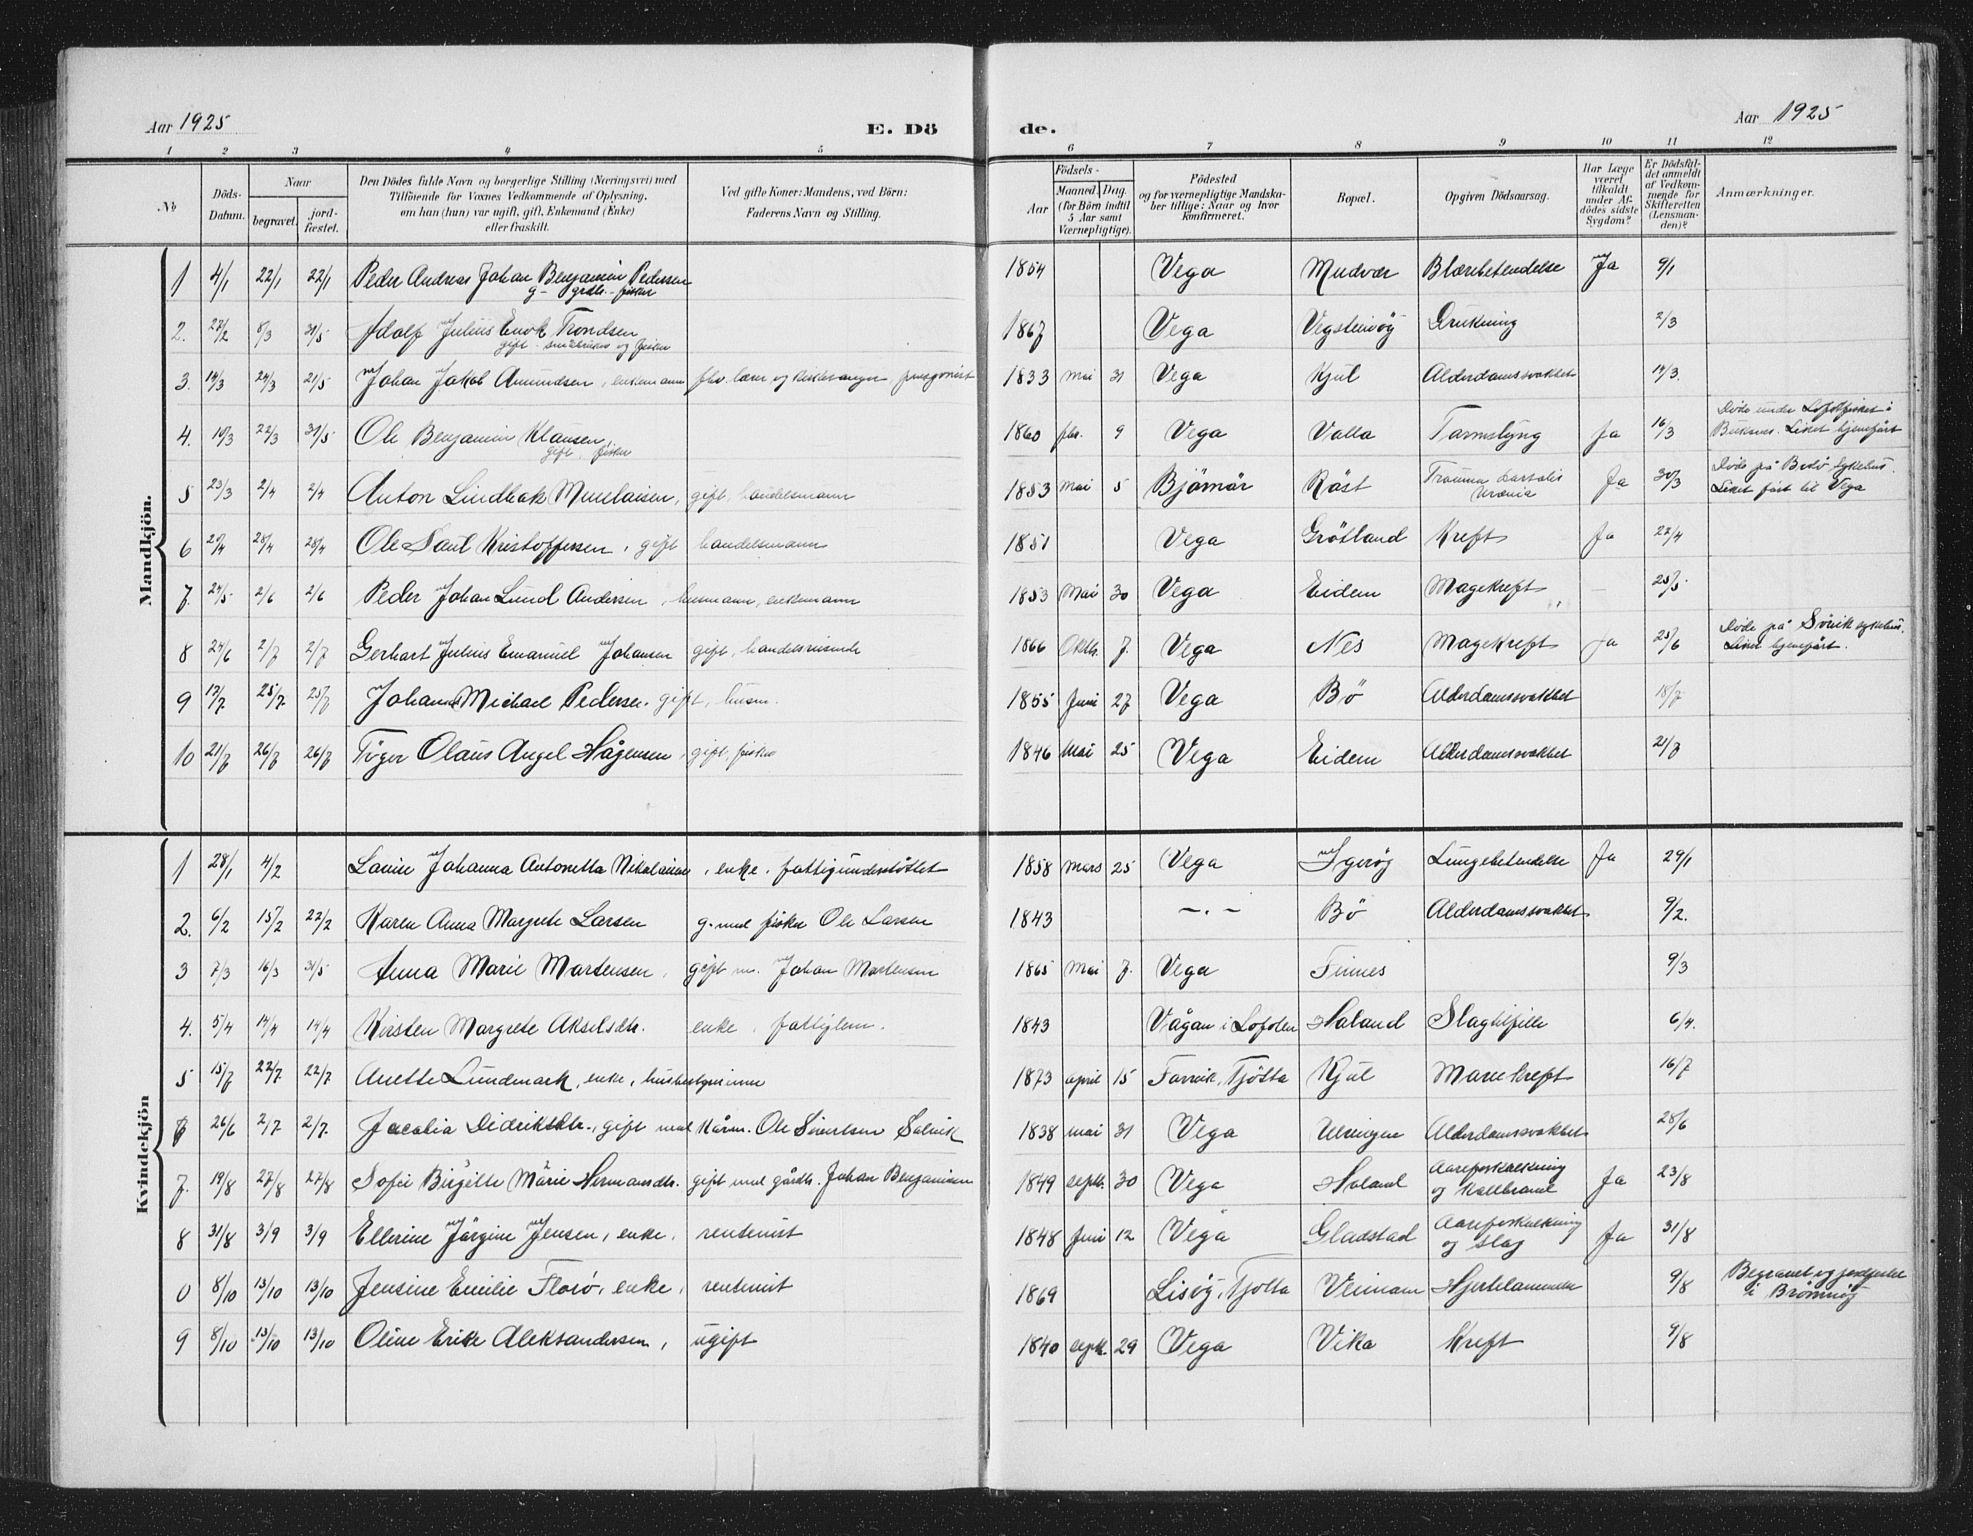 Aar 1925 E. Dö de. Aar 1925
1 2 3 4 5 6 7 8 9 10 11 12
No Döds-Datum. Naar begravet. jordfæstet. Den Dödes fulde Navn og borgerlige Stilling (Næringsvei) med Tilföiende for Voxnes Vedkommende af Oplysning, om han (hun) var ugift, gift, Enkemand (Enke) eller fraskilt. Ved gifte Koner: Mandens, ved Börn: Faderens Navn og Stilling. Födsels- Aar Maaned. Dag. (for Börn indtil 5 Aar samt Værnepligtige). Födested og for værnepligtige Mandskaber tillige: Naar og hvor konfirmeret. Bopæl. Opgiven Dödsaarsag. Har Læge været tilkaldt under Afdödes sidste Sygdom? Er Dödsfaldet anmeldt af Vedkommende for Skifteretten (Lensmanden)? Anmærkninger.
Mandkjön.
1 4/1 22/1 22/1 Peder Andreas Johan Benjamin Pedersen 1854 Vega Mudvær Blærebetendelse Ja 9/1
g- grdbr. - fisker
2. 27/2 8/3 31/5 Adolf Julius Enok Trondsen 1867 Vega Vegsteinvög Drukning 2/3
gift. småbruker og fisker
3. 14/3 24/3 21/5 Johan Jakob Amundsen, enkemann fhv. lærer og kirkesanger pensjonist 1833 mai 31 Vega Kjul Alderdomssvakhet 14/3.
4. 10/3 22/3 31/5 Ole Benjamin Klausen, 1860 fbr. 9 Vega Valla Tarmslyng Ja 16/3 Døde under Lofotfisket i
gift, fisker Buksnes. Liket hjemført
5 23/3 2/4 2/4 Anton Lindbak Menlaisen, gift, handelsmann 1853 mai 5 Bjørnör Röst Ja 30/3 Døde på Bodø sykehus.
Uræmia Liket ført til Vega
6 20/4 28/4 28/4 Ole Paul Kristoffersen, gift handelsmann 1851 Vega Grötland Kreft Ja 22/4
7. 24/5 2/6 2/6 Peder Johan Lund Andersen, husmann, enkemann 1853 Mai 30 Vega Eidem Magekreft - 25/5.
8 24/6 2/7 2/7 Gerhart Julius Emanuel Johansen gift, handelsreisende 1866 Oktb. 7. Vega Nes Magekreft Ja 25/6 Døde på Søvik sykehus.
Liket hjemført.
9 13/7 25/7. 25/7 Johan Michael Pedersen. gift, husm. 1855 Juni 27 Vega Bö Alderdomssvakhet 18/7
10 21/7 26/7 26/7 Töger Olaus Angel Hågensen, gift, fisker 1846 Mai 25 Vega Eidem Alderdomssvakhet 21/7
Kvindekjön
1 28/1 4/2 Lovise Johanna Antonetta Nikolaisen, enke, fattigunderstöttet 1858 mars 25 Vega Igeröy Lungebetendelse Ja 29/1
2. 6/2 15/2 22/2 Karen Anna Margrete Larsen g. med fisker Ole Larsen 1843 -.- Bö Alderdomssvakhet 9/2.
3 7/3 16/3 31/5 Anna Marie Mortensen, gift m. Johan Mortensen 1865 Mai 7. Vega Finnes 9/3
4. 5/4 14/4 14/4 Kirsten Margrete Akselsdtr. enke, fattiglem. 1843 Vågan i Lofoten Holand Slagtilfelle 6/4.
5 15/7 22/7 22/7 Anette Lundmark, enke, husbestyrinne 1873 april 15 Forvik, Tjötta Kjul Mavekreft 16/7
6 26/6 2/7 2/7. Jacobia Didriksdtr., gift med kårm. Ole Sivertsen Salvik 1838 mai 31 Vega Ulvingen Alderdomssvakhet 28/6
7. 19/8 27/8 27/8 Sofie Birgitte Marie Hermansdtr. gift med gårdb. Johan Benjaminsen 1849 septb. 30 Vega Holand Aareforkalkning Ja 23/8
og Koldbrand
8 31/8 3/9 3/9 Ellerine Jörgine Jensen, enke, rentenist 1848 Juni 12 Vega Gladstad Aareforkalkning Ja 31/8
og slag
0 8/10 13/10 13/10 Jensine Emilie Florö, enke, rentenist 1869 Lisöy, Tjötta Veiman Hjertelammelse 9/8 Begravet og jordfestet
i Brönnöy
9 8/10 13/10 13/10 Oline Erike Aleksandersen, ugift 1840 septb. 29 Vega Vika Kreft 9/8